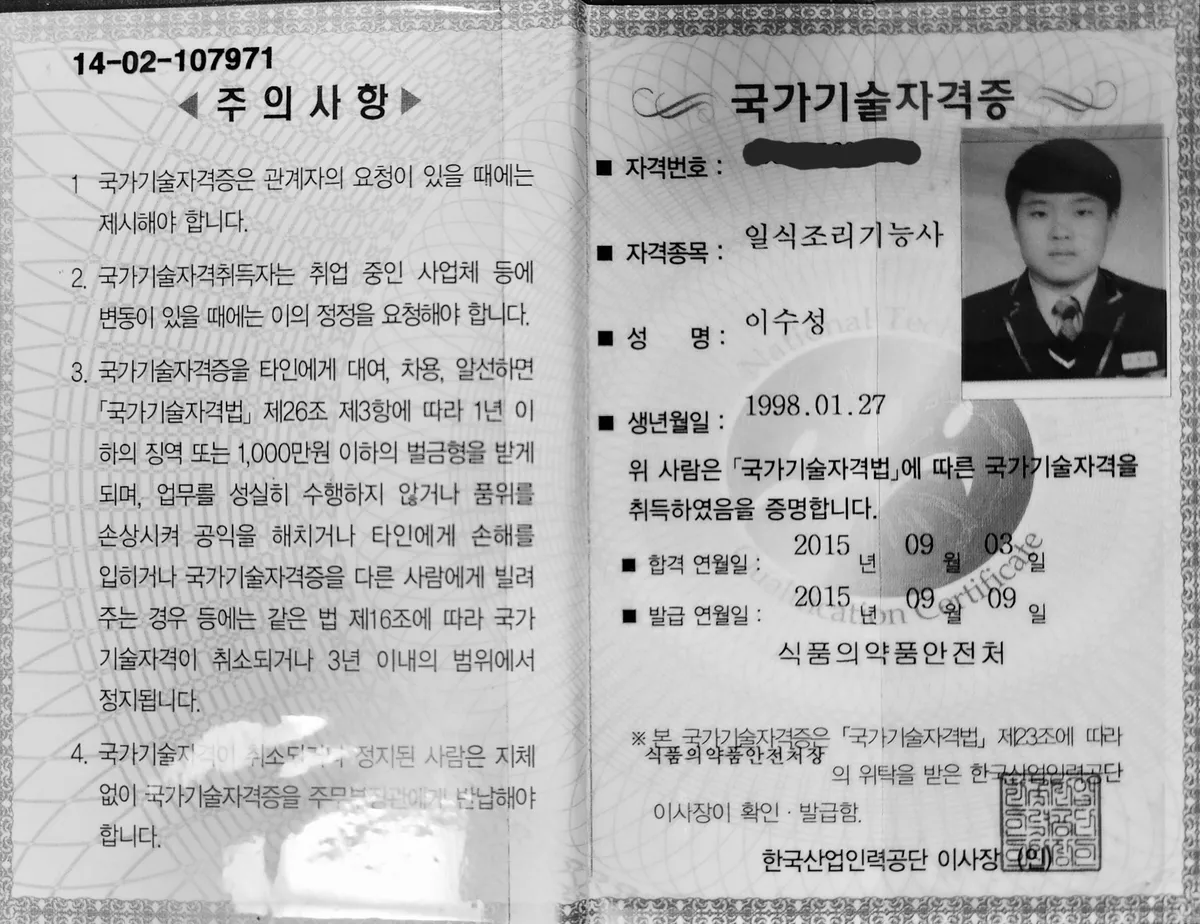 14-02-107971
◀ 주의사항 ▶
1 국가기술자격증은 관계자의 요청이 있을 때에는
제시해야 합니다.
2. 국가기술자격취득자는 취업 중인 사업체 등에
변동이 있을 때에는 이의 정정을 요청해야 합니다.
3. 국가기술자격증을 타인에게 대여, 차용, 알선하면
「국가기술자격법」 제26조 제3항에 따라 1년 이
하의 징역 또는 1,000만원 이하의 벌금형을 받게
되며, 업무를 성실히 수행하지 않거나 품위를
손상시켜 공익을 해치거나 타인에게 손해를
입히거나 국가기술자격증을 다른 사람에게 빌려
주는 경우 등에는 같은 법 제16조에 따라 국가
기술자격이 취소되거나 3년 이내의 범위에서
정지됩니다.
4. 국가기술자격이 취소되거나 정지된 사람은 지체
없이 국가기술자격증을 주무부장관에게 반납해야
합니다.
국가기술자격증
■ 자격번호 :
■ 자격종목 : 일식조리기능사
■ 성 명 : 이수성
■ 생년월일 : 1998.01.27
위 사람은 「국가기술자격법」에 따른 국가기술자격을
취득하였음을 증명합니다.
■ 합격 연월일 : 2015 년 09 월 03 일
■ 발급 연월일 : 2015 년 09 월 09 일
식품의약품안전처
※ 본 국가기술자격증은 「국가기술자격법」 제23조에 따라
식품의약품안전처장 의 위탁을 받은 한국산업인력공단
이사장이 확인·발급함.
한국산업인력공단 이사장 (인)
National Tech
Qualification Certificate